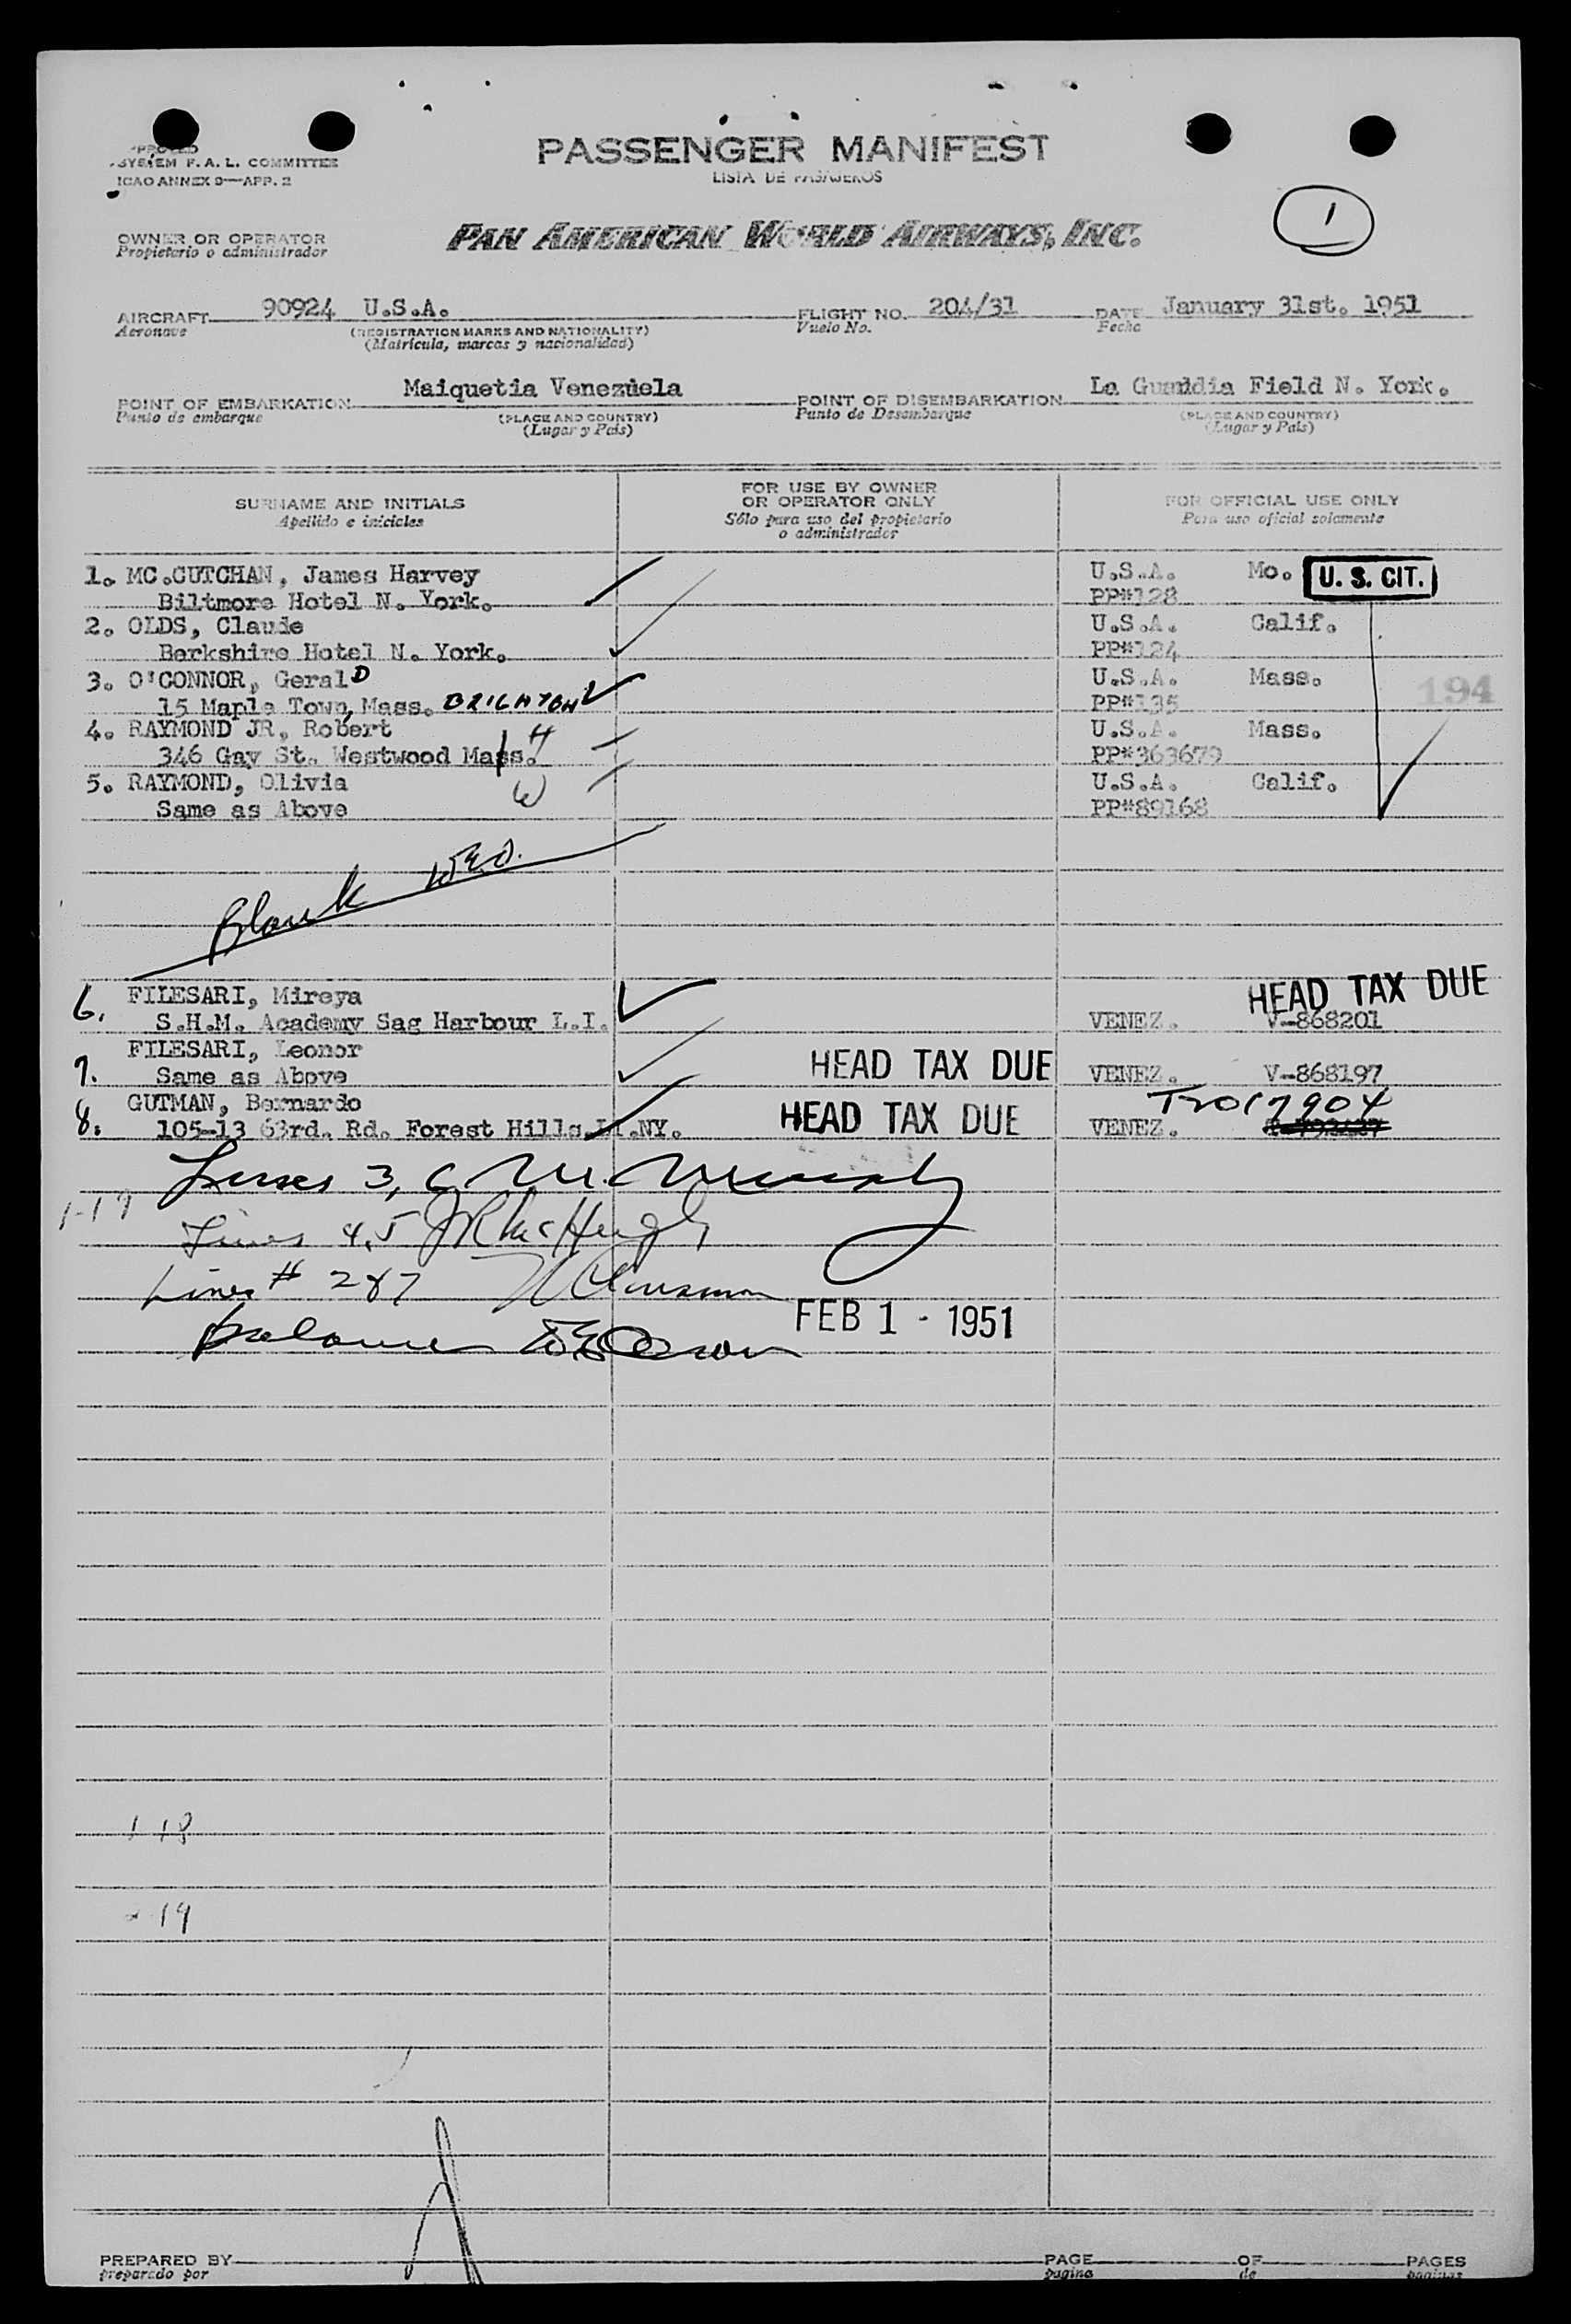 SYSTEM F. A. L. COMMITTEE
ICAO ANNEX 9—APP. 2
PASSENGER MANIFEST
LISTA DE PASAJEROS
1
OWNER OR OPERATOR
Propietario o administrador
PAN AMERICAN WORLD AIRWAYS, INC.
AIRCRAFT 90924 U.S.A. FLIGHT NO. 204/31 DATE January 31st. 1951
Aeronave (REGISTRATION MARKS AND NATIONALITY) Vuelo No. Fecha
(Matrícula, marcas y nacionalidad)
POINT OF EMBARKATION Maiquetia Venezuela POINT OF DISEMBARKATION La Guardia Field N. York.
Punto de embarque (PLACE AND COUNTRY) Punto de Desembarque (PLACE AND COUNTRY)
(Lugar y País) (Lugar y País)
SURNAME AND INITIALS
Apellido e iniciales
FOR USE BY OWNER
OR OPERATOR ONLY
Sólo para uso del propietario
o administrador
FOR OFFICIAL USE ONLY
Para uso oficial solamente
1. MC.CUTCHAN, James Harvey U.S.A. Mo. U. S. CIT.
Biltmore Hotel N. York. PP#128
2. OLDS, Claude U.S.A. Calif.
Berkshire Hotel N. York. PP#124
3. O'CONNOR, Gerald U.S.A. Mass. 194
15 Maple Town, Mass. BRIGHTON PP#135
4. RAYMOND JR, Robert H U.S.A. Mass.
346 Gay St. Westwood Mass. PP#363679
5. RAYMOND, Olivia W U.S.A. Calif.
Same as Above PP#89168
Blank
HEAD TAX DUE
6. FILESARI, Mireya
S.H.M. Academy Sag Harbour L.I. VENEZ. V-868201
7. FILESARI, Leonor HEAD TAX DUE
Same as Above VENEZ. V-868197
8. GUTMAN, Bernardo HEAD TAX DUE T2017904
105-13 63rd. Rd. Forest Hills, .NY. VENEZ.
Lines 3, 6
1-17
Lines 4,5 JR McHugh
Lines # 2 & 7
FEB 1 - 1951
1 18
19
PREPARED BY PAGE OF PAGES
preparado por pagina de paginas